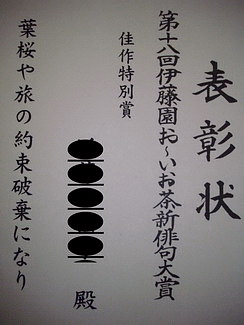 表彰状
第十八回伊藤園お〜いお茶新俳句大賞
佳作特別賞
殿
葉桜や旅の約束破棄になり